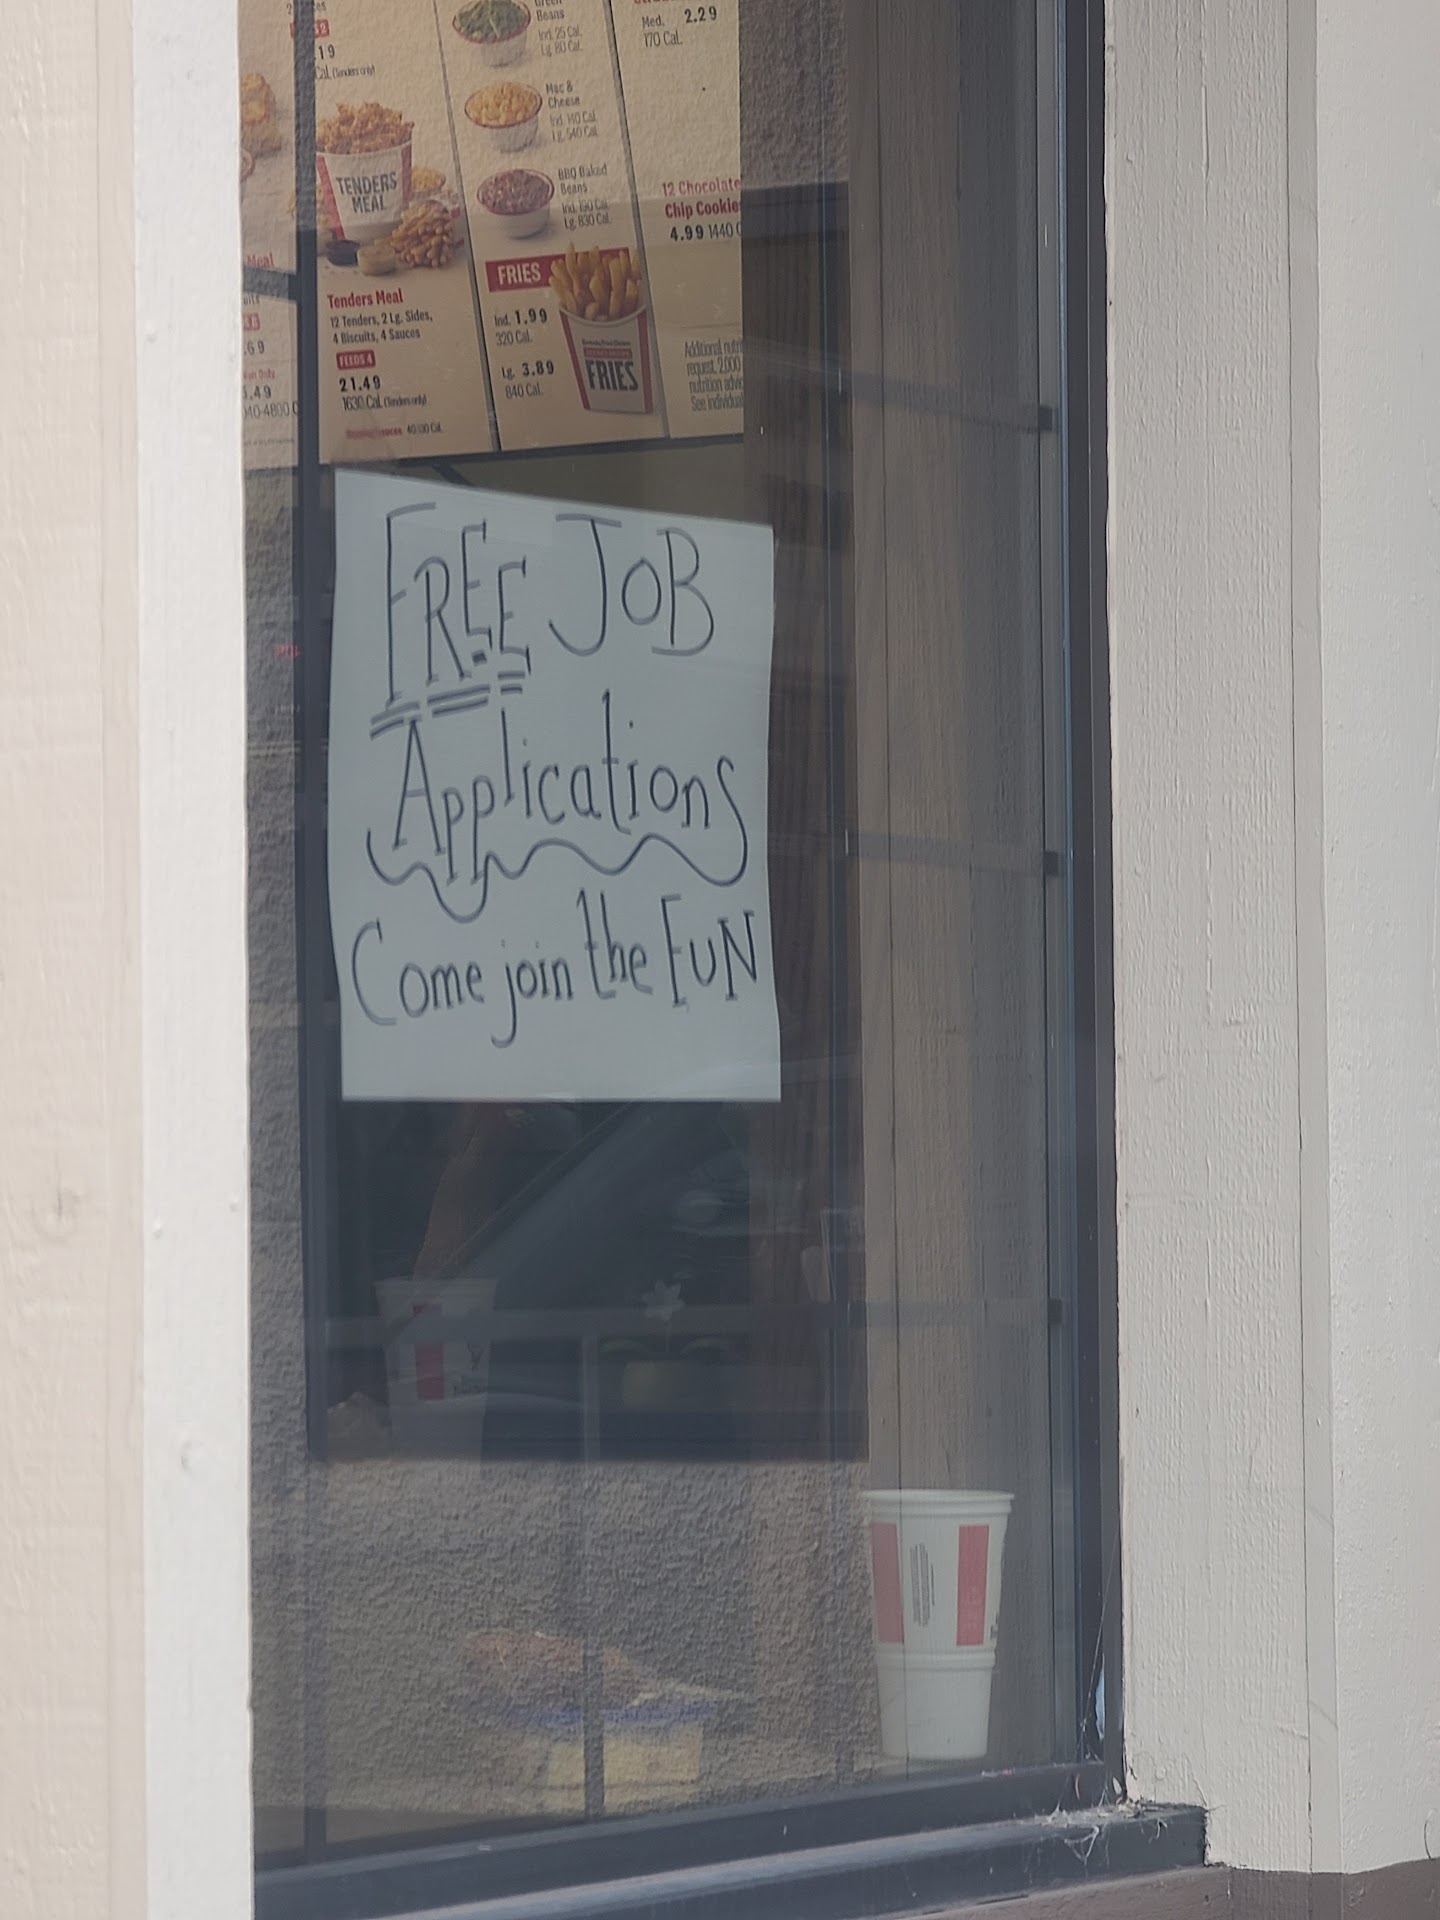 Beans
Ind. 25 Cal.
Lg. 80 Cal.
Med. 2.29
170 Cal.
Cal. (Tenders only)
Mac &
Cheese
Ind. 140 Cal.
Lg. 540 Cal.
TENDERS
MEAL
BBQ Baked
Beans
Ind. 190 Cal.
Lg. 830 Cal.
12 Chocolate
Chip Cookies
4.99 1440
Meal
Tenders Meal
12 Tenders, 2 Lg. Sides,
4 Biscuits, 4 Sauces
FEEDS 4
21.49
1630 Cal. (Tenders only)
FRIES
Ind. 1.99
320 Cal.
Lg. 3.89
840 Cal.
FRIES
Additional
request. 2,000
nutrition
See individual
FREE JOB
Applications
Come join the FUN